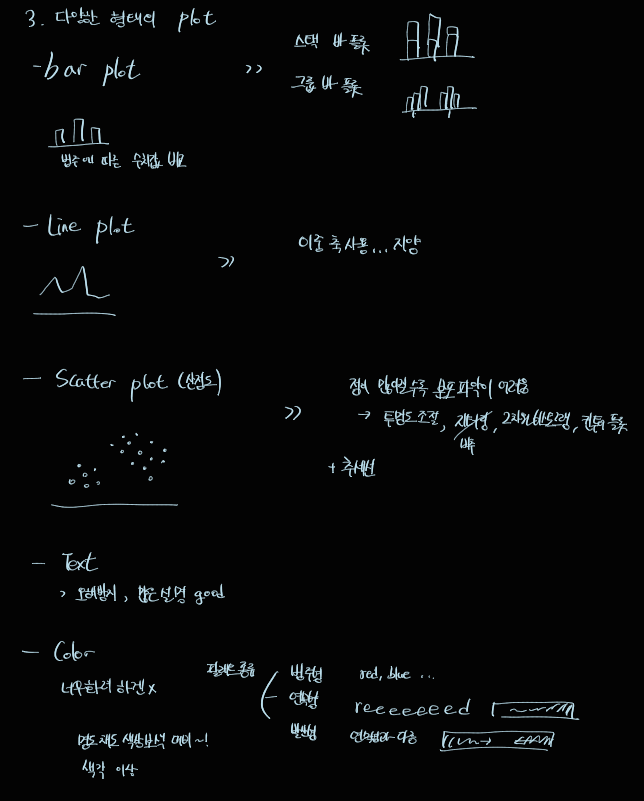 3. 다양한 형태의 plot
-bar plot
>>
스택 바 플롯
그룹 바 플롯
범주에 따른 수치값 비교
- Line plot
>>
이중 축 사용... 지양
- Scatter plot (산점도)
>>
점이 많아질수록 분포파악이 어려움
→ 투명도 조절, 지터링, 2차원 히스토그램, 컨투어 플롯
+ 추세선
- Text
> 오해방지, 많은 설명 good
- Color
너무 화려 하겐 x
팔레트 종류
범주형 red, blue ...
연속형 reeeeeeed
발산형 연속형과 다름
명도 채도 색상 보색 대비 ~!
색각 이상